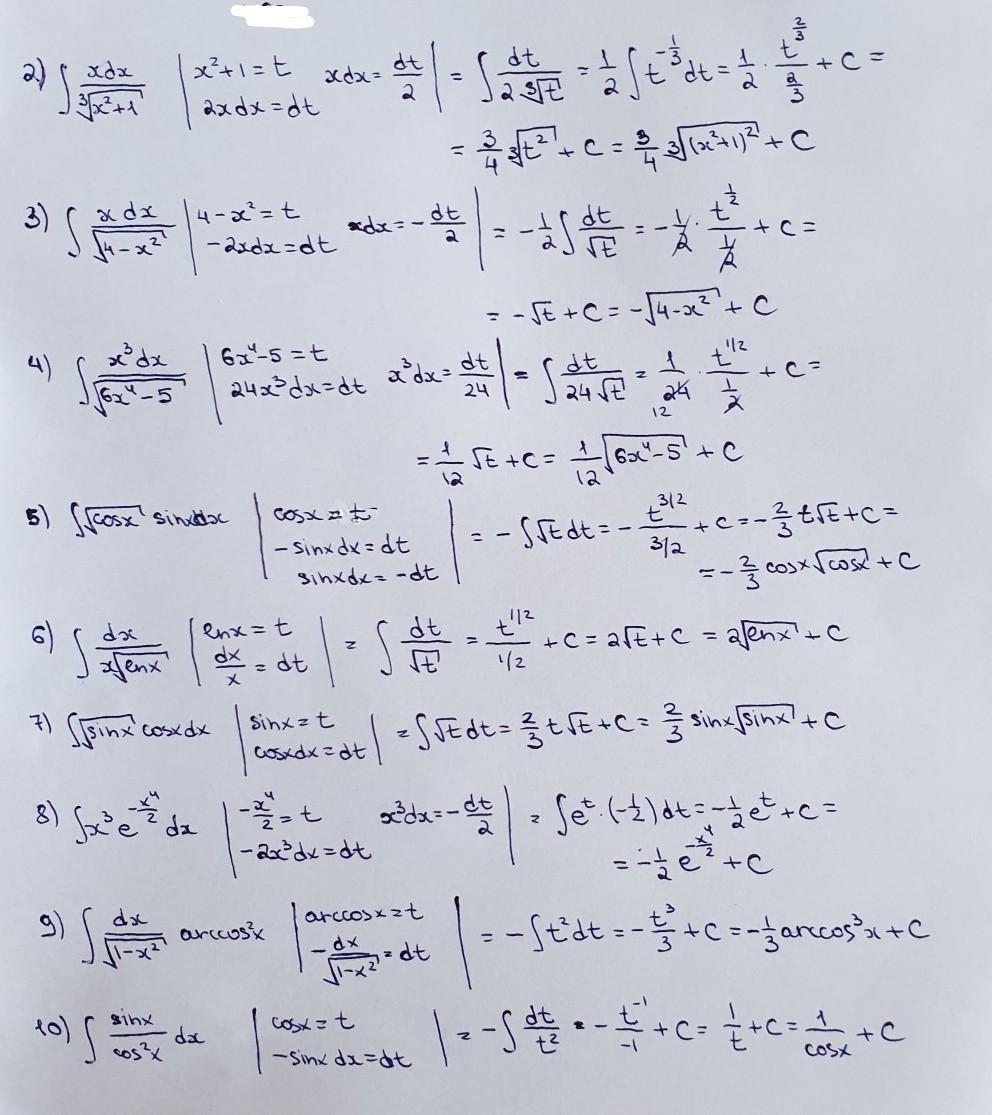 2) ∫ xdx/∛(x²+1) | x²+1=t 2xdx=dt xdx= dt/2 | = ∫ dt/(2∛t) = 1/2 ∫ t^(-1/3) dt = 1/2 · t^(2/3)/(2/3) + C =
= 3/4 ∛(t²) + C = 3/4 ∛((x²+1)²) + C
3) ∫ xdx/√(4-x²) | 4-x²=t -2xdx=dt xdx=- dt/2 | = -1/2 ∫ dt/√t = -1/2 · t^(1/2)/(1/2) + C =
= -√t + C = -√(4-x²) + C
4) ∫ x³dx/√(6x⁴-5) | 6x⁴-5=t 24x³dx=dt x³dx= dt/24 | = ∫ dt/(24√t) = 1/24 · t^(1/2)/(1/2) + C =
12
= 1/12 √t + C = 1/12 √(6x⁴-5) + C
5) ∫√cosx sinxdx | cosx=t -sinxdx=dt sinxdx=-dt | = -∫√t dt = - t^(3/2)/(3/2) + C = -2/3 t√t + C =
= -2/3 cosx√cosx + C
6) ∫ dx/(x√lnx) | lnx=t dx/x = dt | = ∫ dt/√t = t^(1/2)/(1/2) + C = 2√t + C = 2√lnx + C
7) ∫√sinx cosxdx | sinx=t cosxdx=dt | = ∫√t dt = 2/3 t√t + C = 2/3 sinx√sinx + C
8) ∫x³e^(-x⁴/2) dx | -x⁴/2=t -2x³dx=dt x³dx=- dt/2 | = ∫e^t · (-1/2) dt = -1/2 e^t + C =
= -1/2 e^(-x⁴/2) + C
9) ∫ dx/√(1-x²) arccos²x | arccosx=t - dx/√(1-x²) = dt | = -∫t²dt = - t³/3 + C = -1/3 arccos³x + C
10) ∫ sinx/cos²x dx | cosx=t -sinxdx=dt | = -∫ dt/t² = - t^(-1)/-1 + C = 1/t + C = 1/cosx + C